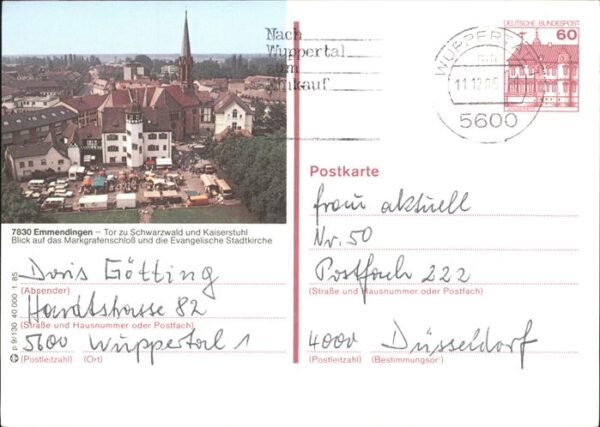 Nach
Wuppertal
zum
Einkauf
WUPPERTAL
mh
11.12.85
5600
DEUTSCHE BUNDESPOST
60
7830 Emmendingen – Tor zu Schwarzwald und Kaiserstuhl
Blick auf das Markgrafenschloß und die Evangelische Stadtkirche
p 9/130 40 000 1. 85
Doris Götting
(Absender)
Hardtstrasse 82
(Straße und Hausnummer oder Postfach)
5600 Wuppertal 1
(Postleitzahl) (Ort)
Postkarte
frau aktuell
Nr. 50
Postfach 222
(Straße und Hausnummer oder Postfach)
4000 Düsseldorf
(Postleitzahl) (Bestimmungsort)